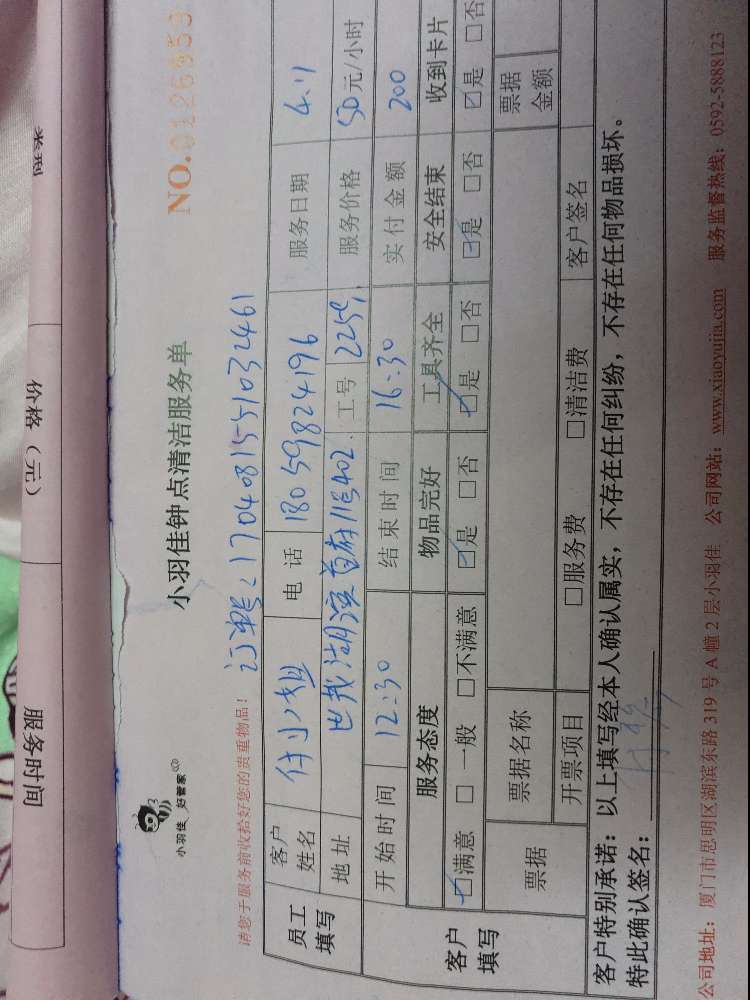 服务时间 价格（元） 类型
小羽佳 好管家
小羽佳钟点清洁服务单
NO.0126953
请您于服务前收拾好您的贵重物品！
订单号：17040815551032461
员工填写 客户姓名 付小姐 电话 18059824196 服务日期 4.11
地址 世茂湖滨首府11号402. 工号 2259 服务价格 50元/小时
客户填写 开始时间 12:30 结束时间 16:30 实付金额 200
服务态度 物品完好 工具齐全 安全结束 收到卡片
☑满意 □一般 □不满意 ☑是 □否 ☑是 □否 ☑是 □否 ☑是 □否
票据 票据名称 票据金额
开票项目 □服务费 □清洁费 客户签名
客户特别承诺：以上填写经本人确认属实，不存在任何纠纷，不存在任何物品损坏。
特此确认签名：
公司地址：厦门市思明区湖滨东路319号A幢2层小羽佳 公司网站：www.xiaoyujia.com 服务监督热线：0592-5888123